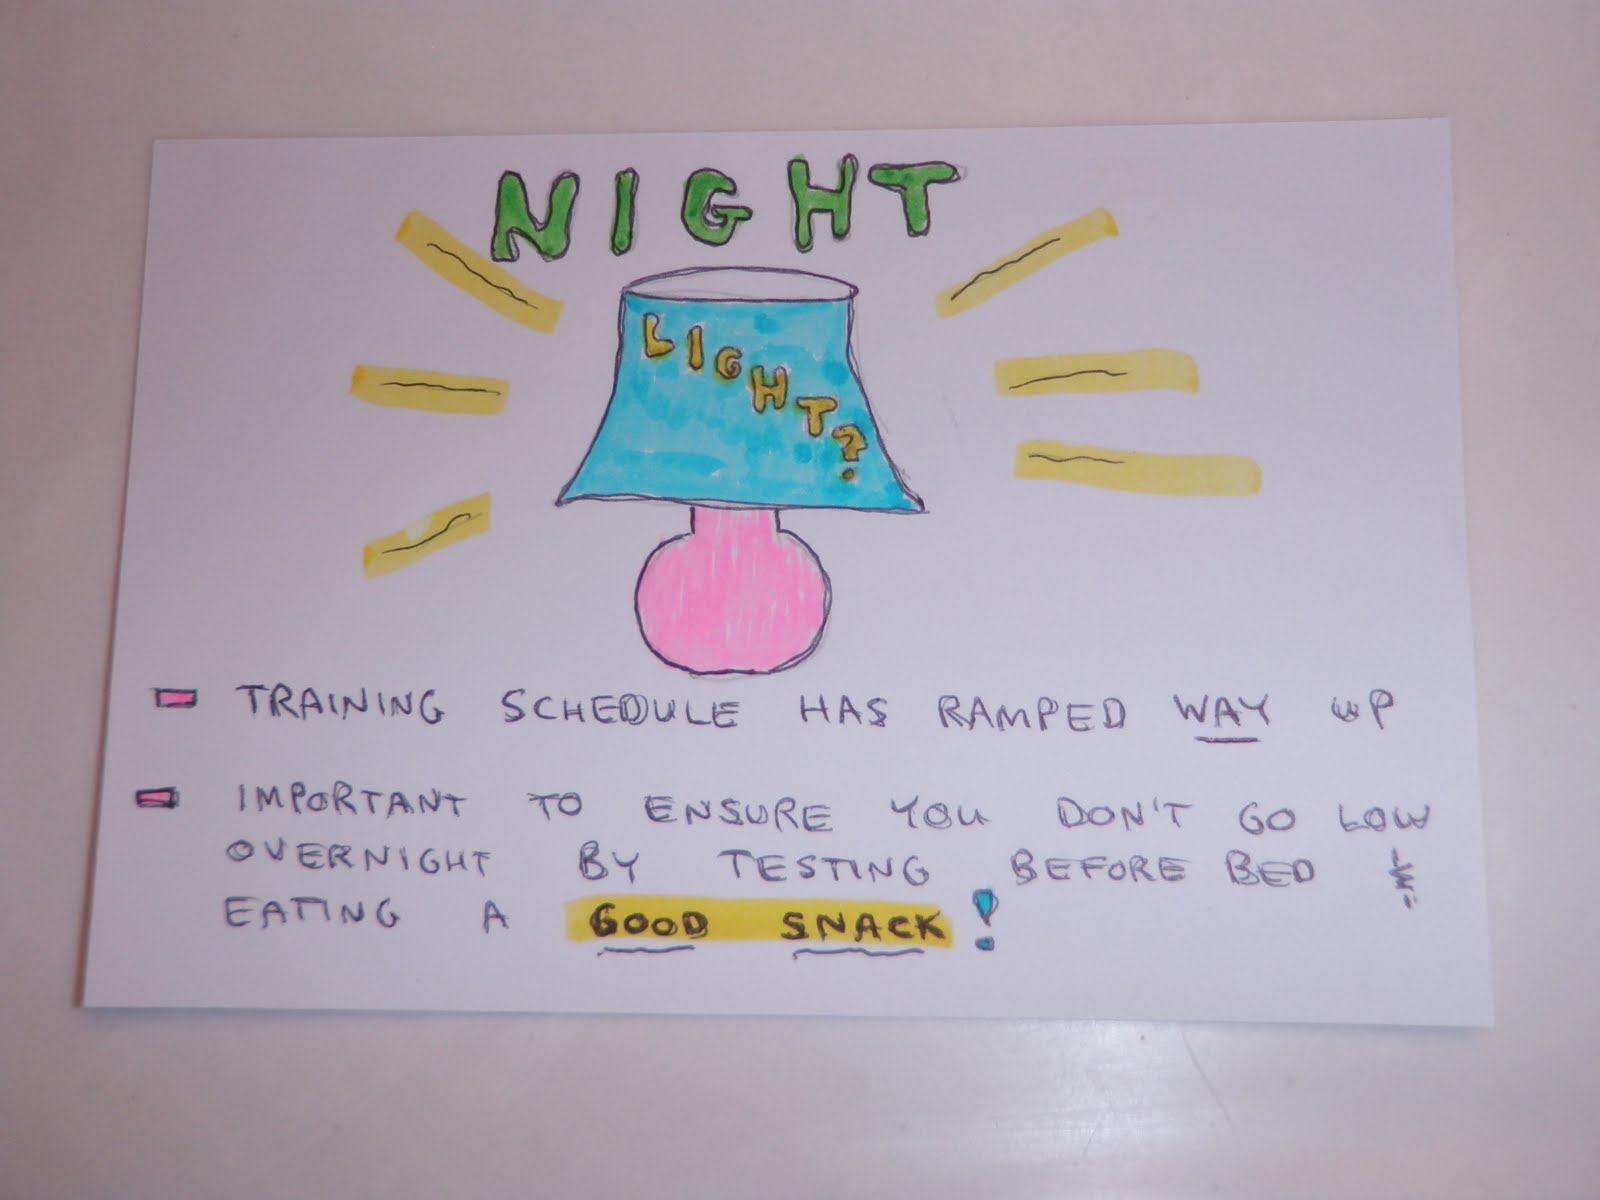 NIGHT
LIGHT?
- TRAINING SCHEDULE HAS RAMPED WAY UP
- IMPORTANT TO ENSURE YOU DON'T GO LOW
OVERNIGHT BY TESTING BEFORE BED &
EATING A GOOD SNACK!